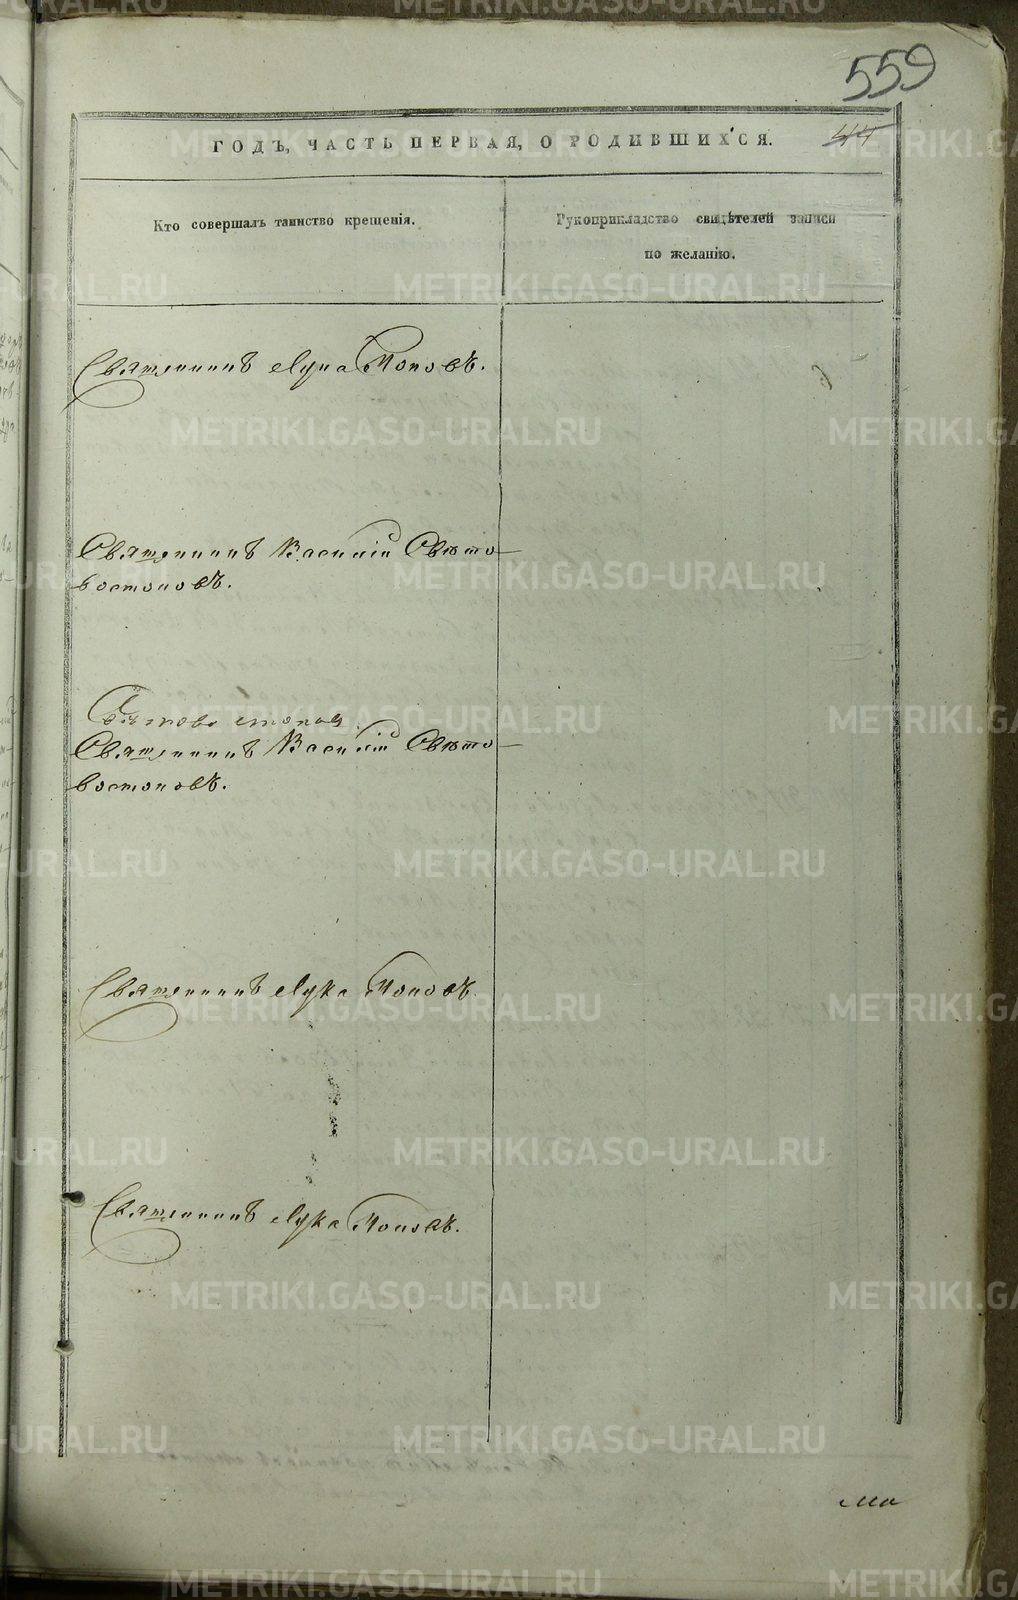 559
ГОДЪ, ЧАСТЬ ПЕРВАЯ, О РОДИВШИХСЯ.
44
Кто совершалъ таинство крещенія.
Рукоприкладство свидѣтелей записи
по желанію.
Священникъ Лука Поповъ.
Священникъ Василій Свѣто-
востоковъ.
Священникъ Василій Свѣто-
востоковъ.
Священникъ Лука Поповъ
Священникъ Лука Поповъ.
METRIKI.GASO-URAL.RU